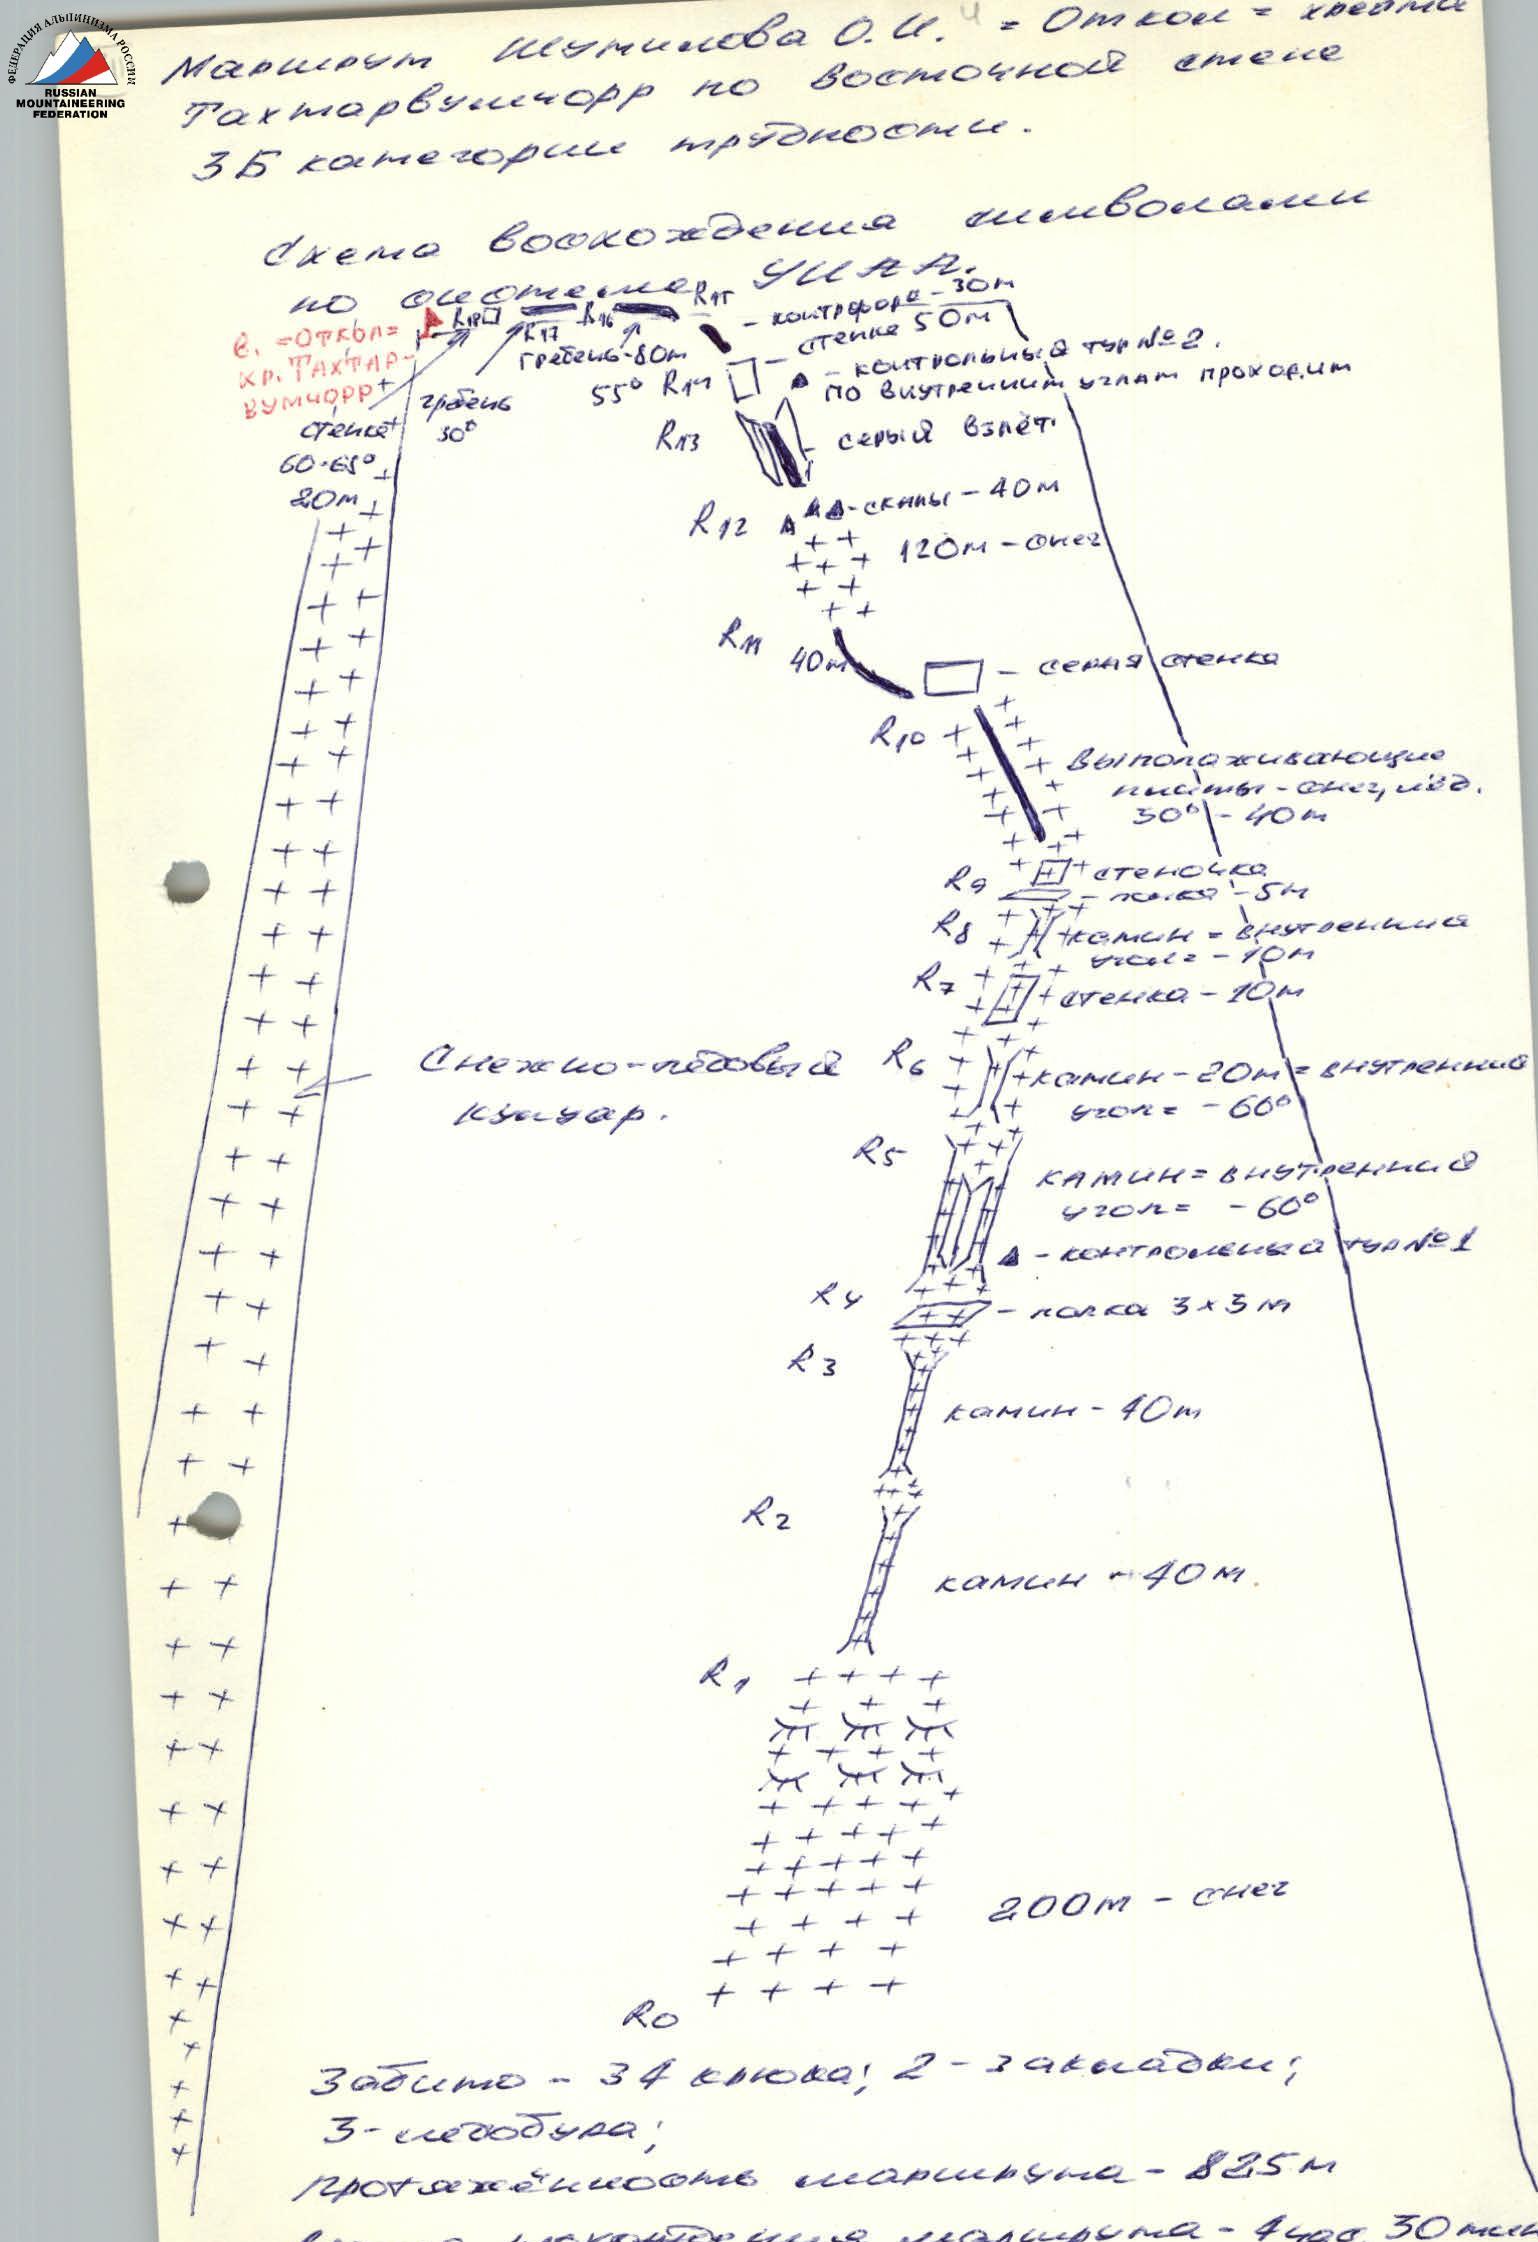 ФЕДЕРАЦИЯ АЛЬПИНИЗМА РОССИИ
RUSSIAN
MOUNTAINEERING
FEDERATION
Маршрут Шумилова О.И. = Откол = хребта
Тахтарвумчорр по восточной стене
3Б категории трудности.
Схема восхождения символами
по системе УИАА.
в. =ОТКОЛ=
ХР. ТАХТАР-
ВУМЧОРР
R18
R17
R16
R15
- контрфорс - 30м
стенка 50м
гребень - 80м
- контрольный тур №2.
по внутренним углам проходим
55° R14
гребень
30°
стенка
60-65°
20м
R13
- серый взлёт
R12
- скалы - 40м
120м - снег
R11
40м
- серая стенка
R10
выполаживающие
плиты - снег, лёд.
30° - 40м
R9
стеночка
- полка - 5м
R8
камин = внутренний
угол = - 10м
R7
стенка - 10м
Снежно-ледовый
кулуар.
R6
камин - 20м = внутренний
угол = - 60°
R5
камин = внутренний
угол = - 60°
- контрольный тур №1
R4
- полка 3х3м
R3
камин - 40м
R2
камин - 40м.
R1
200м - снег
R0
Забито - 34 крюка; 2 - закладки;
3 - ледобура;
Протяжённость маршрута - 825м
прохождения маршрута - 4 час. 30 мин